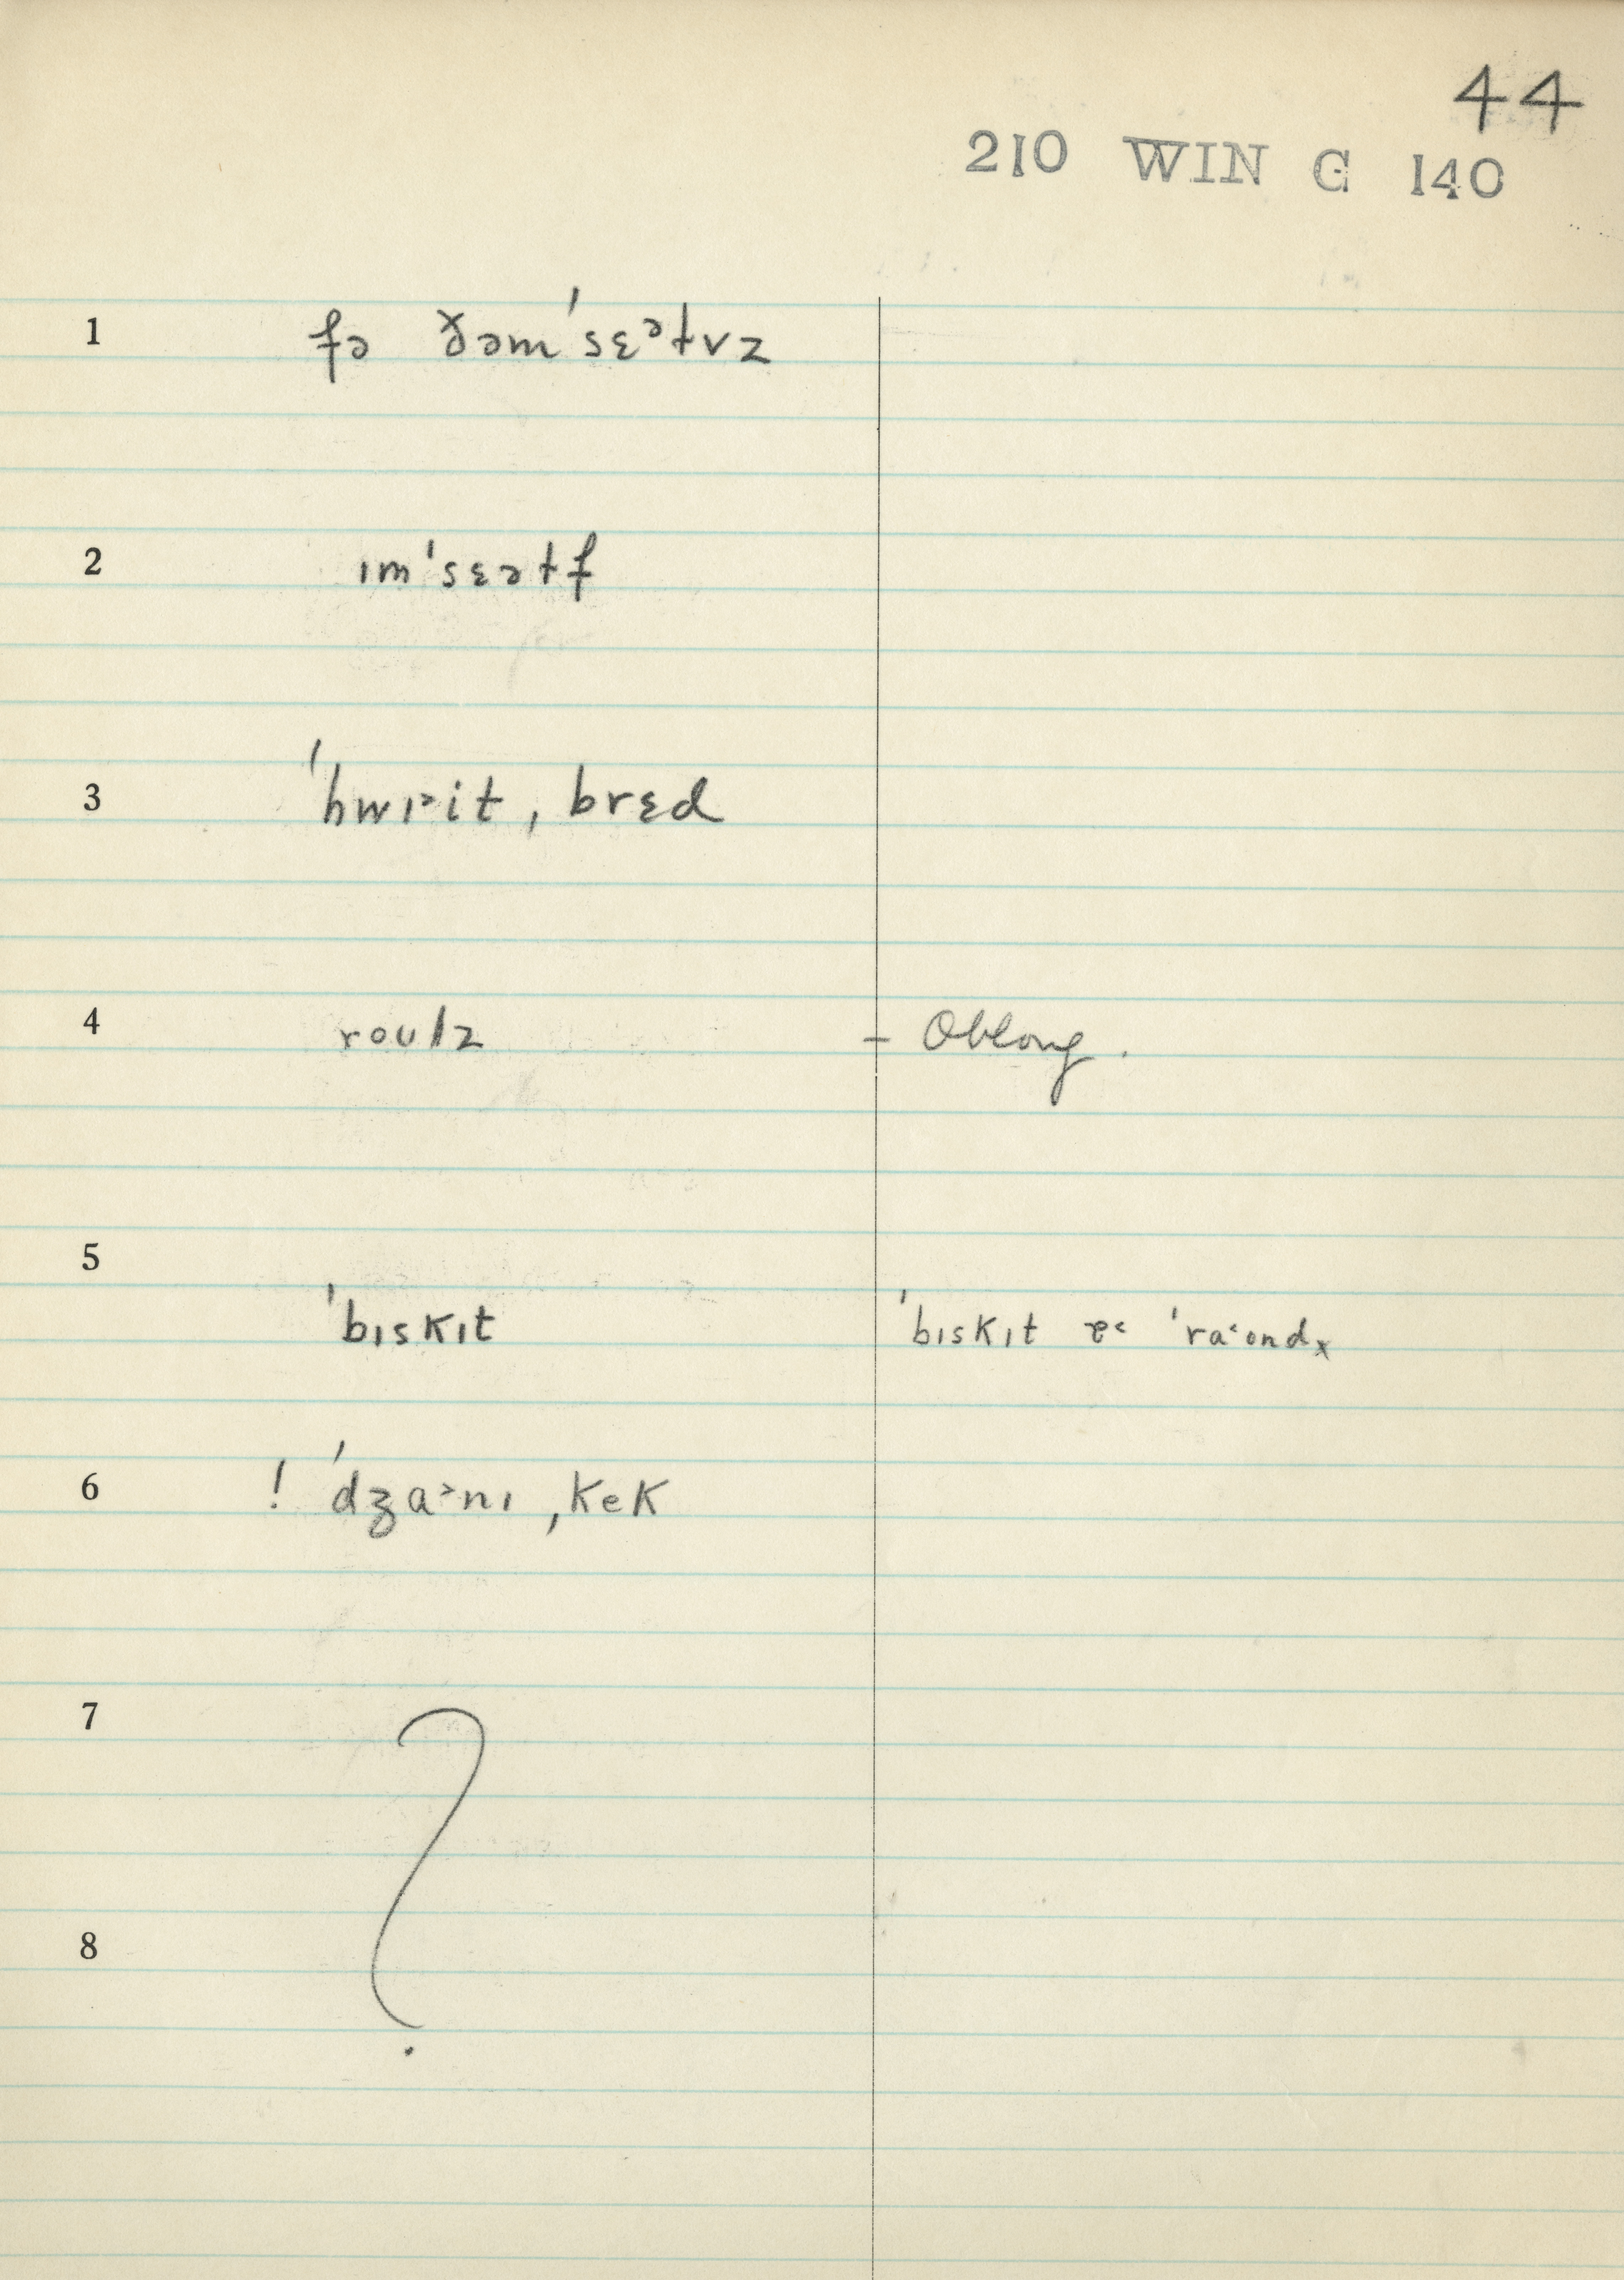 44
210 WIN G 140
1 fə ðəmˈsɛᵊɫvz
2 ɪmˈsɛəɫf
3 ˈhwɪ˃it ˌbrɛd
4 roʊlz – Oblong.
5
ˈbɪskɪt ˈbɪskɪt ɐ˂ ˈra˂ʊndₓ
6 ! ˈdʒa˃nɪ ˌkek
7 ?
8